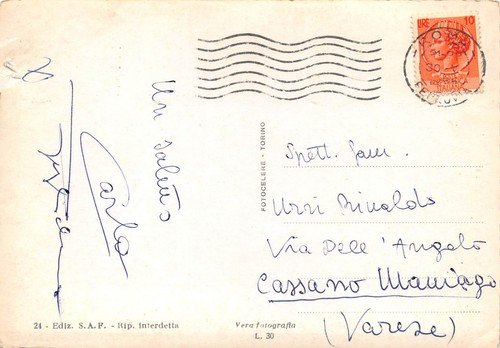 Un saluto
Carlo
Spett. Fam.
Urri Rinaldo
Via Dell'Angelo
Cassano Maniago
(Varese)
LIRE 10
ROMA
FERROVIA
FOTOCELERE - TORINO
24 - Ediz. S.A.F. - Rip. interdetta
Vera fotografia
L. 30